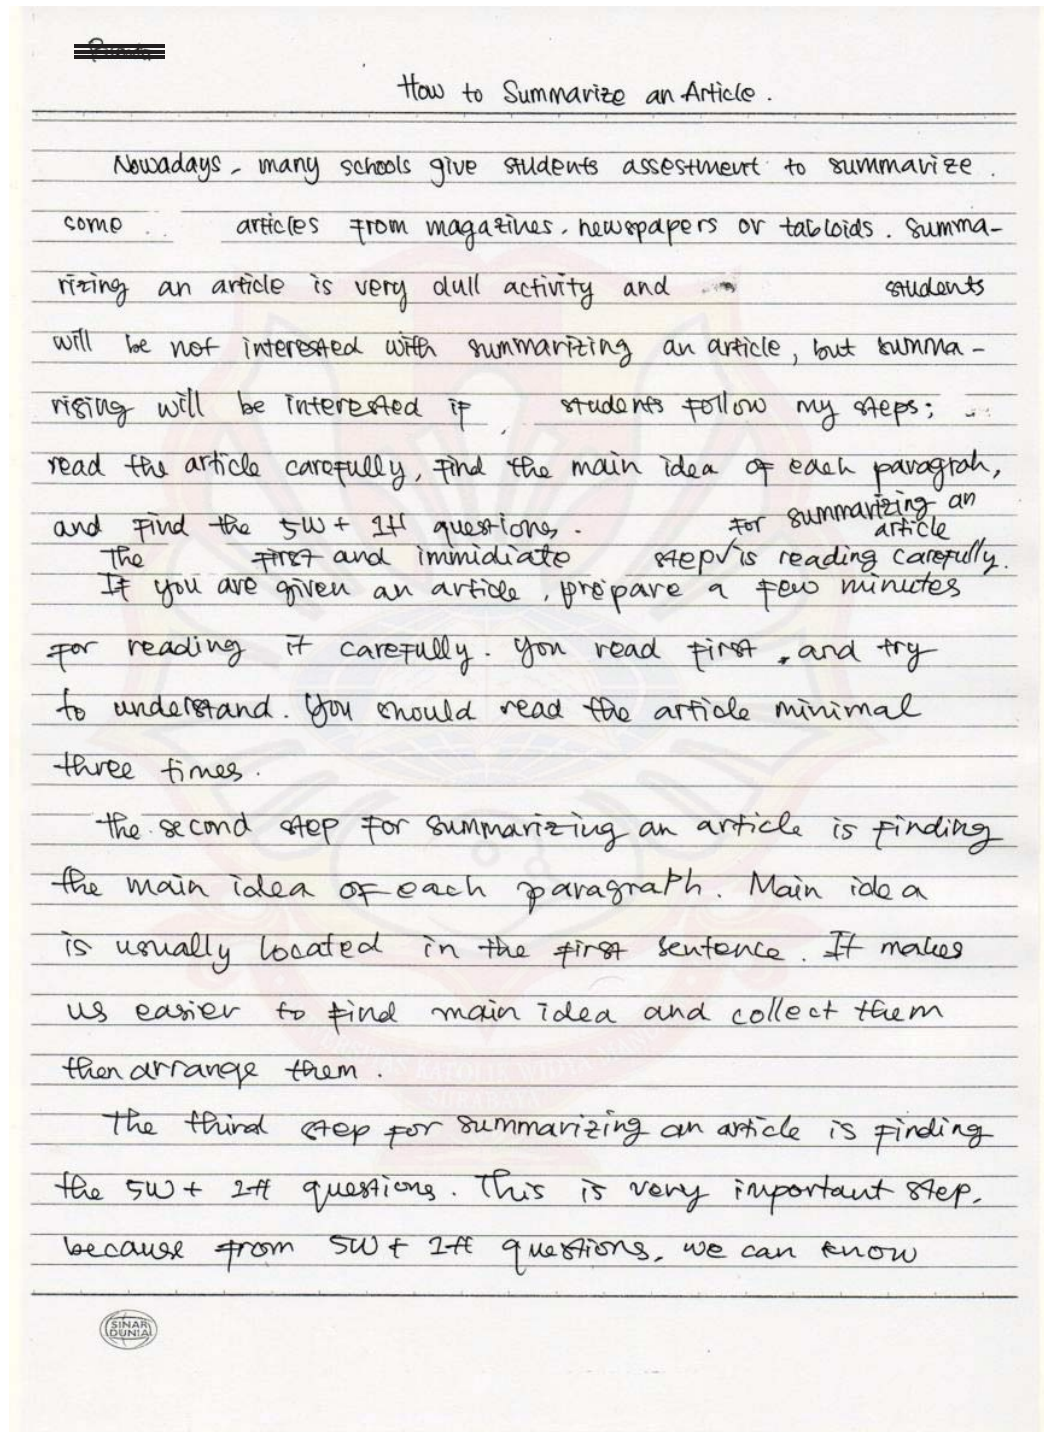 How to Summarize an Article.
Nowadays, many schools give students assestment to summarize
some articles from magazines, newspapers or tabloids. Summa-
rizing an article is very dull activity and students
will be not interested with summarizing an article, but summa-
rising will be interested if students follow my steps;
read the article carefully, find the main idea of each paragrah,
and find the 5W + 1H questions.
for summarizing an
article
The first and immidiate step √ is reading carefully.
If you are given an article, prepare a few minutes
for reading it carefully. You read first, and try
to understand. You should read the article minimal
three times.
The second step for summarizing an article is finding
the main idea of each paragraph. Main idea
is usually located in the first sentence. It makes
us easier to find main idea and collect them
then arrange them.
The third step for summarizing an article is finding
the 5W + 1H questions. This is very important step,
because from 5W + 1H questions, we can know
SINAR
DUNIA